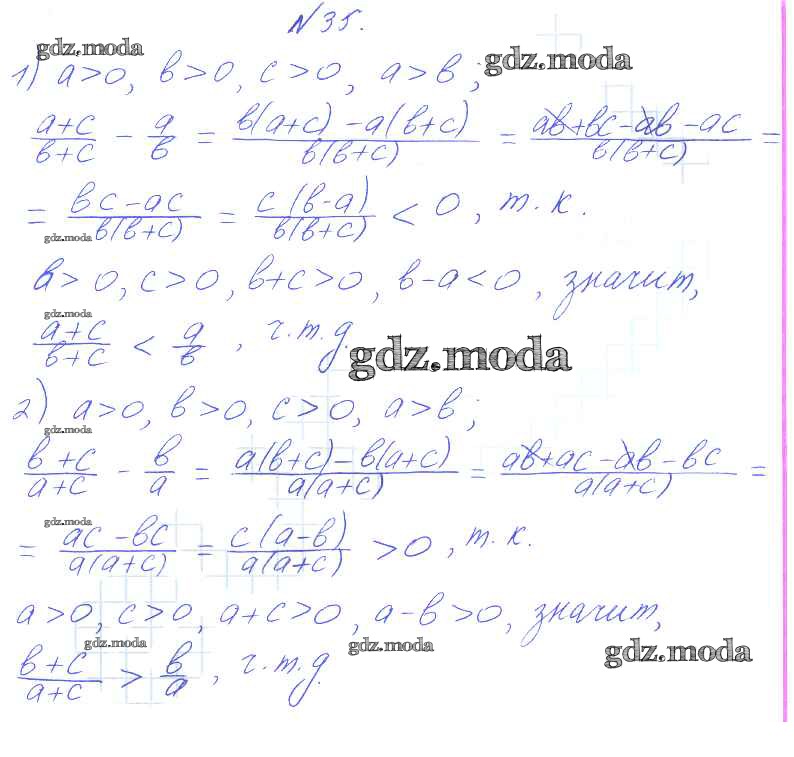 N 35.
gdz.moda
1) a>0, b>0, c>0, a>b; gdz.moda
(a+c)/(b+c) − a/b = (b(a+c) − a(b+c))/(b(b+c)) = (ab+bc−ab−ac)/(b(b+c)) =
= (bc−ac)/(b(b+c)) = (c(b−a))/(b(b+c)) < 0, т.к.
gdz.moda
b>0, c>0, b+c>0, b−a<0, значит,
gdz.moda
(a+c)/(b+c) < a/b, ч.т.д. gdz.moda
2) a>0, b>0, c>0, a>b;
gdz.moda
(b+c)/(a+c) − b/a = (a(b+c)−b(a+c))/(a(a+c)) = (ab+ac−ab−bc)/(a(a+c)) =
gdz.moda
= (ac−bc)/(a(a+c)) = (c(a−b))/(a(a+c)) >0, т.к.
a>0, c>0, a+c>0, a−b>0, значит,
gdz.moda gdz.moda gdz.moda
(b+c)/(a+c) > b/a, ч.т.д